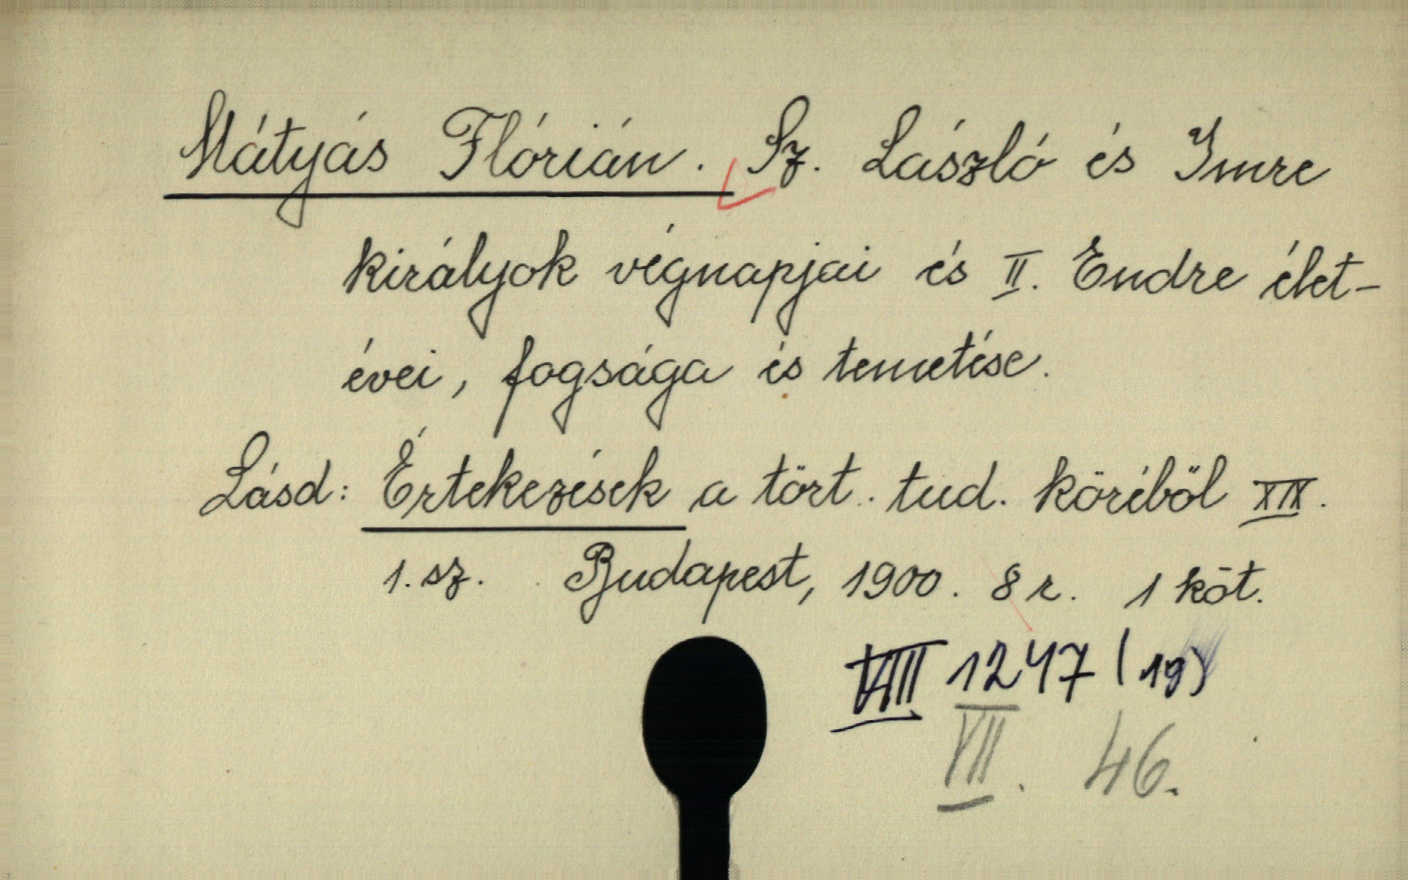 Mátyás Flórián. Sz. László és Imre
királyok végnapjai és II. Endre élet-
évei, fogsága és temetése.
Lásd: Értekezések a tört. tud. köréből XIX.
1. sz. Budapest, 1900. 8 r. 1 köt.
VIII 1247 (19)
VII. 46.